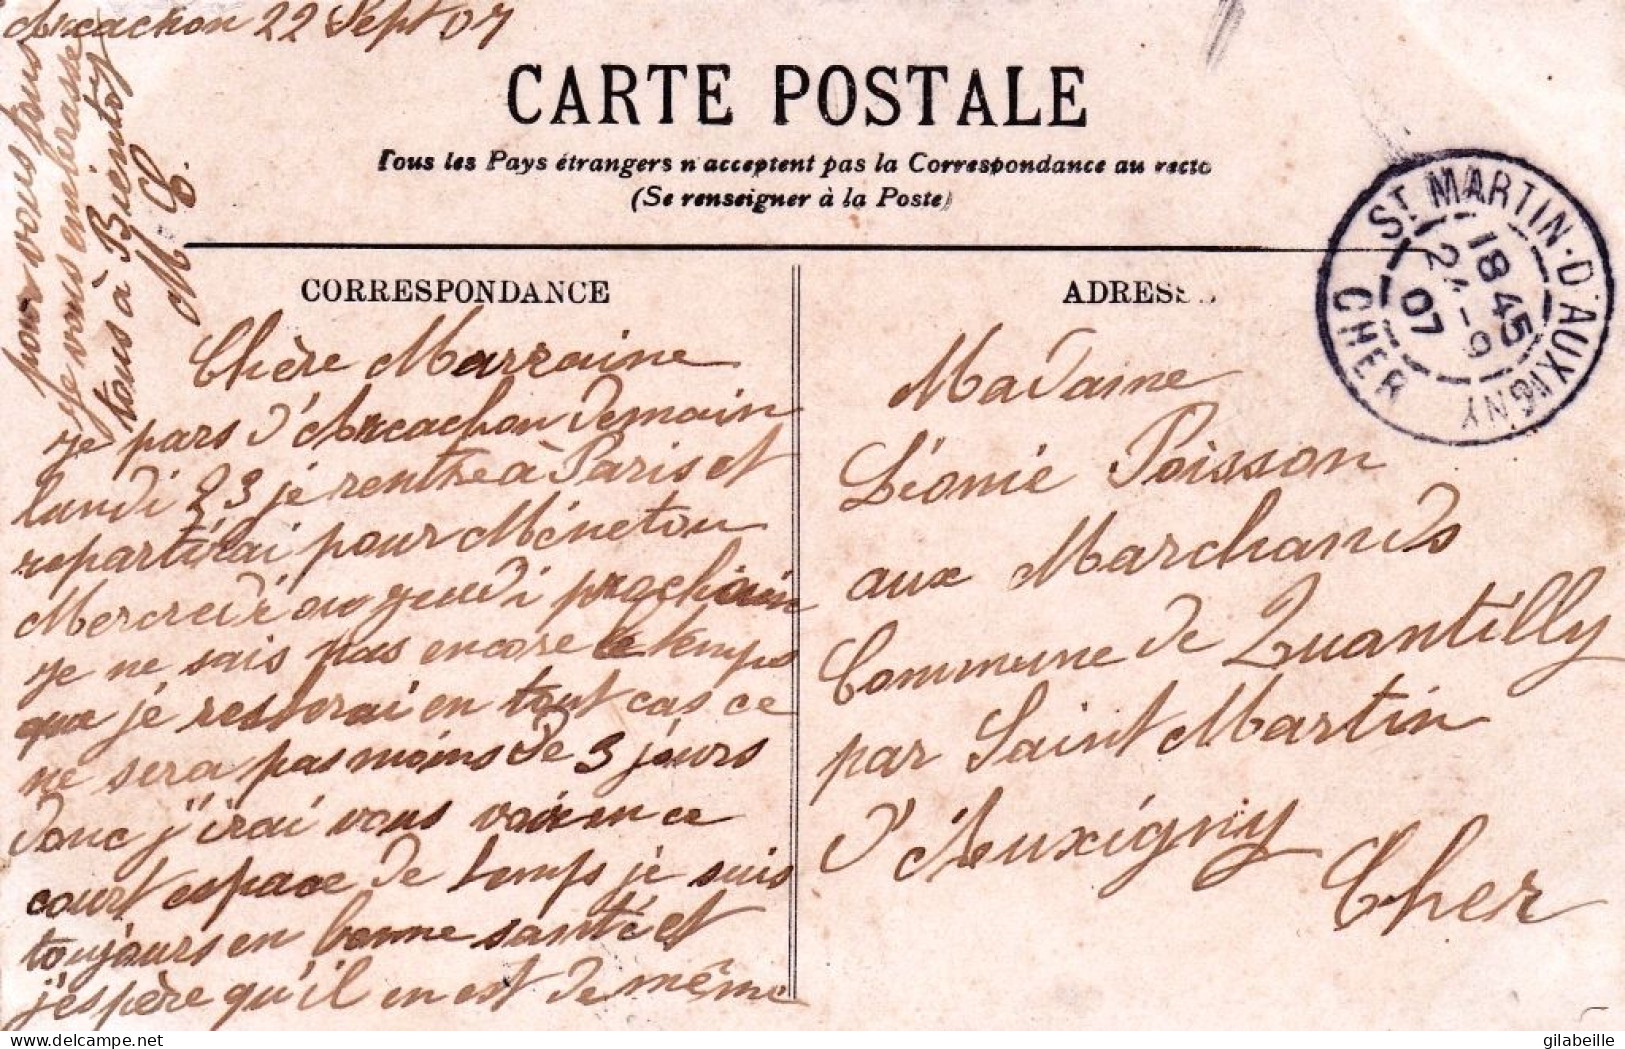 Arcachon 22 Sept 07
CARTE POSTALE
Tous les Pays étrangers n'acceptent pas la Correspondance au recto
(Se renseigner à la Poste)
CORRESPONDANCE
Chère Marraine
je pars d'Arcachon demain
lundi 23 je rentre à Paris et
repartirai pour Ménetou
Mercredi ou jeudi prochain
je ne sais pas encore le temps
que je resterai en tout cas ce
ne sera pas moins de 3 jours
donc j'irai vous voir en ce
court espace de temps je suis
toujours en bonne santé et
j'espère qu'il en est de même
pour vous tous
je vous embrasse
tous à Bientot
M C.
ADRESS
Madame
Léonie Poisson
aux Marchands
Commune de Quantilly
par Saint Martin
d'Auxigny
Cher
ST MARTIN-D'AUXIGNY
18 45
24 -9
07
CHER
gilabeille